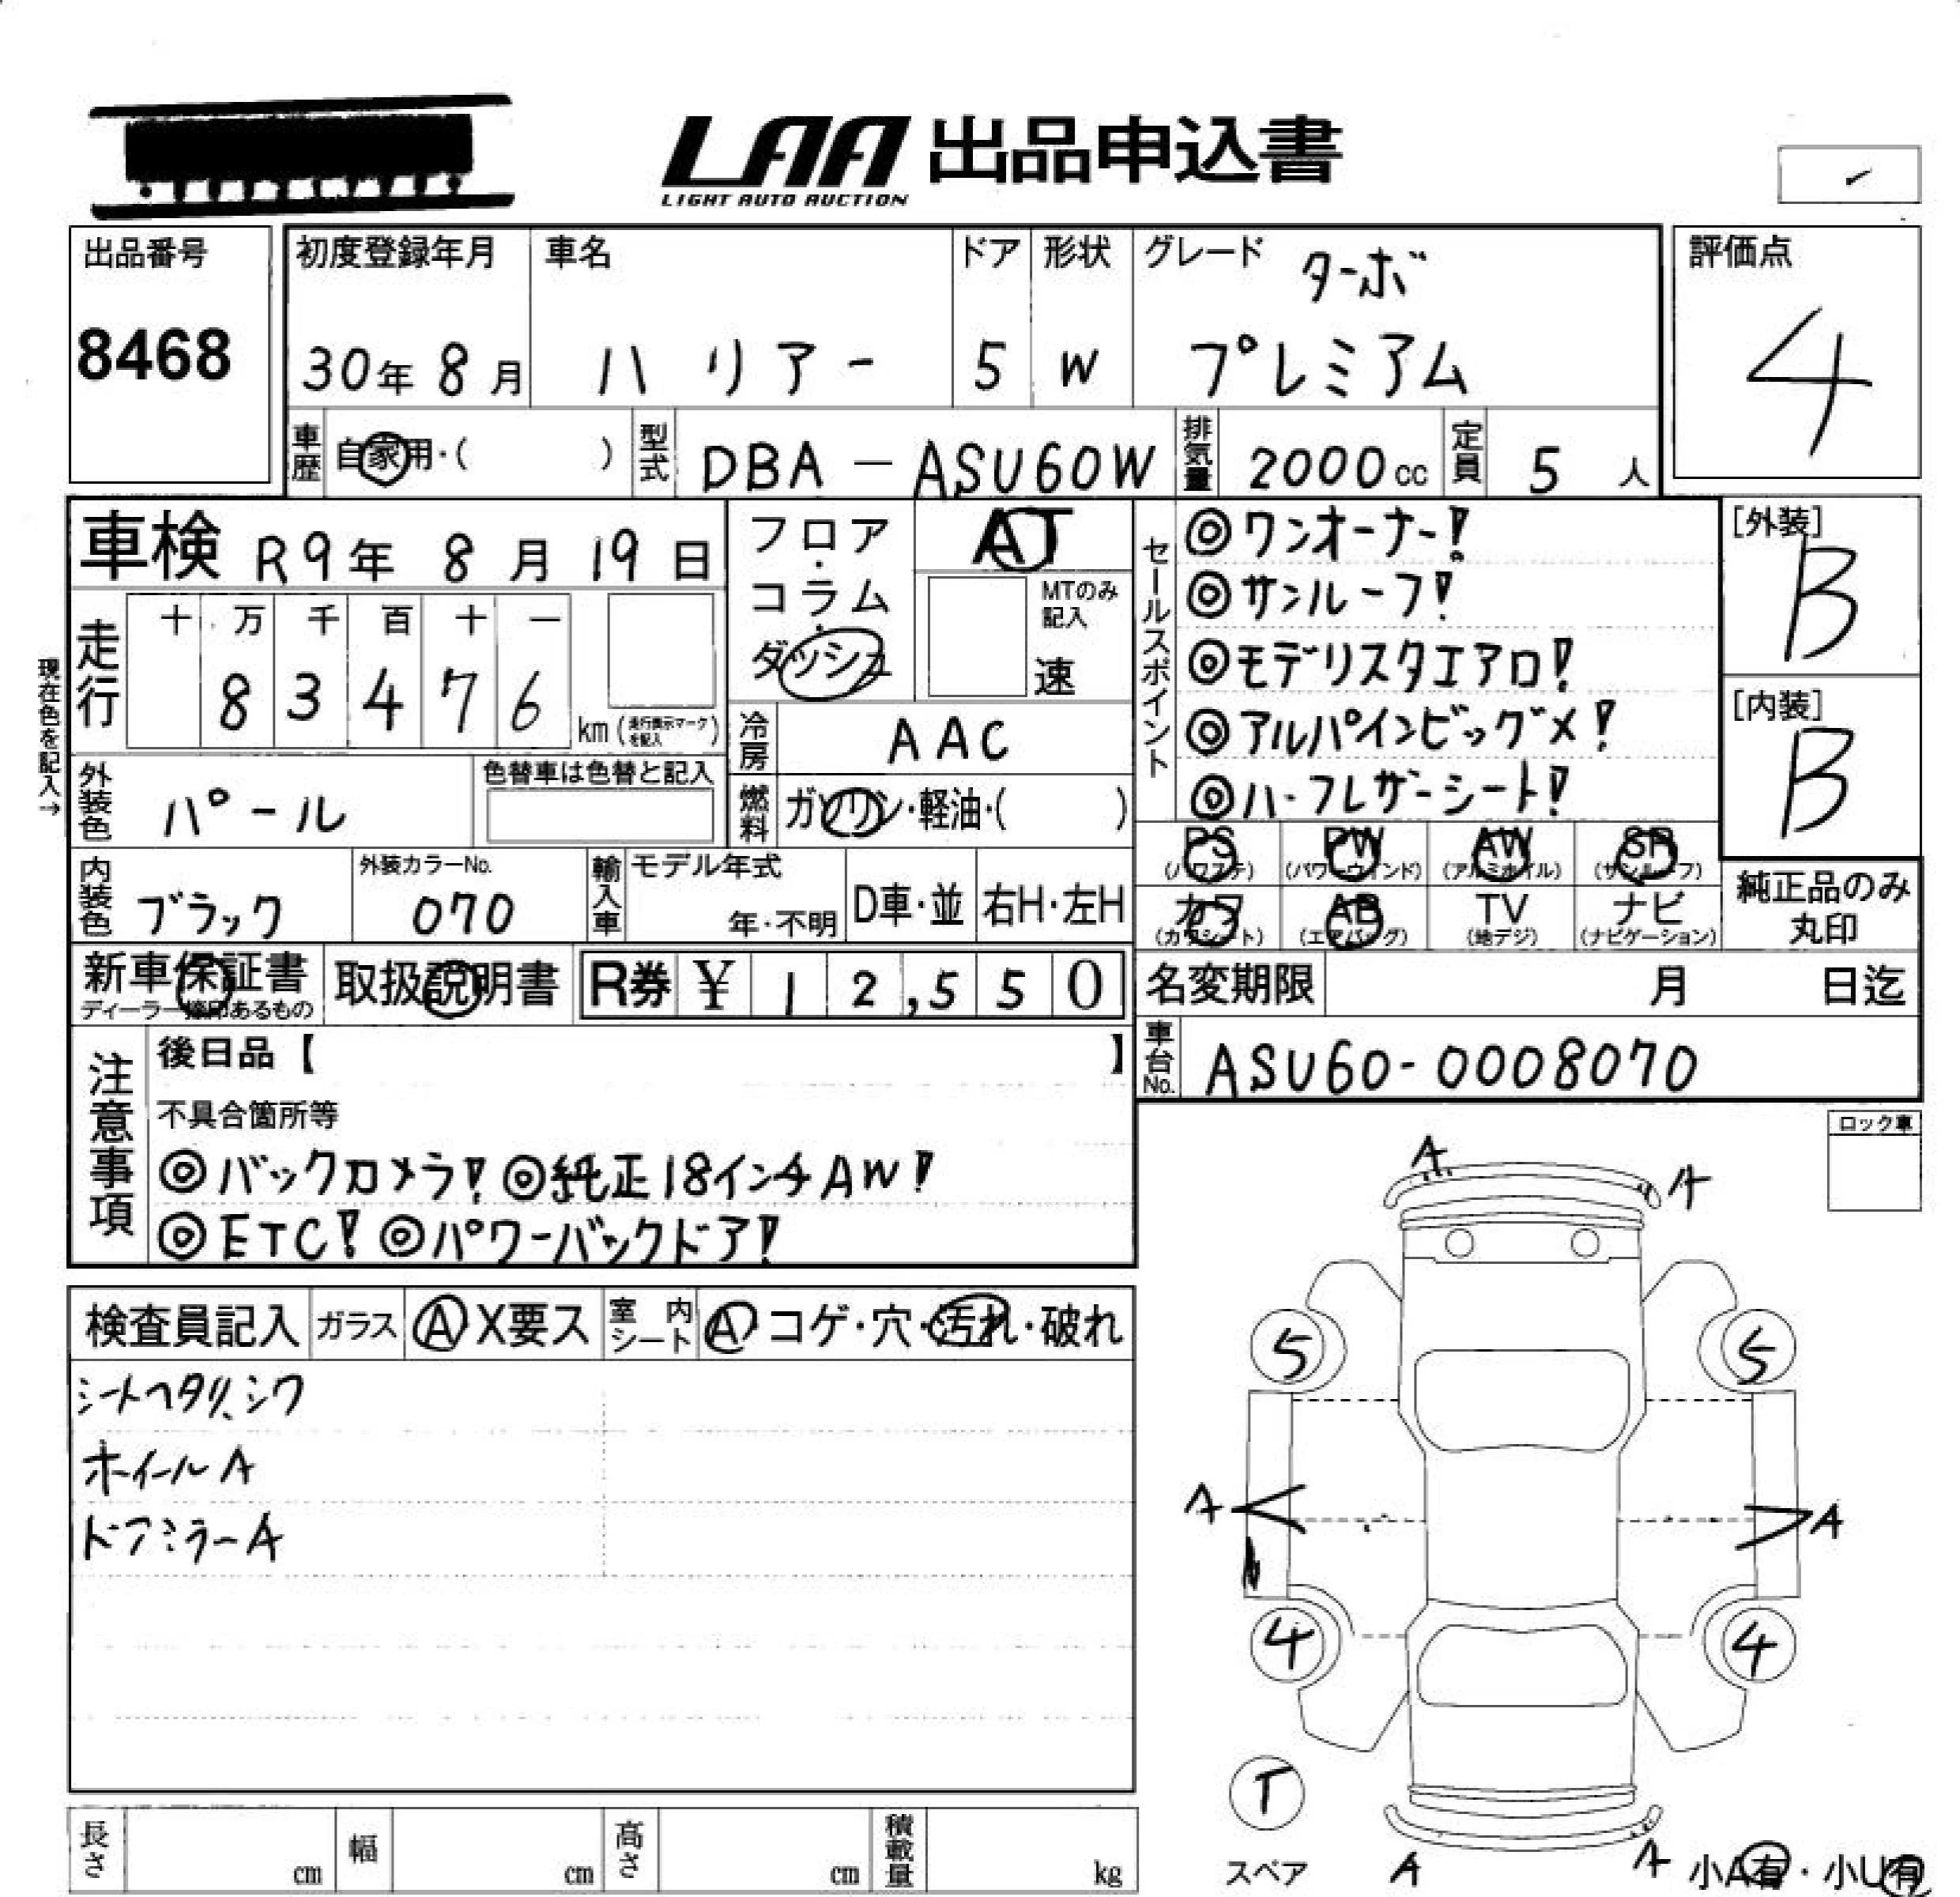 LAA 出品申込書
LIGHT AUTO AUCTION
出品番号
8468
初度登録年月
30年 8月
車名
ハリアー
ドア
5
形状
W
グレード ターボ
プレミアム
評価点
4
車歴 自家用・( )
型式 DBA-ASU60W
排気量 2000cc
定員 5人
車検 R9年 8月 19日
フロア・コラム・ダッシュ
AT
MTのみ記入
速
走行
十 万 千 百 十 一
8 3 4 7 6
km (走行表示マークを記入)
現在色を記入→
冷房 AAC
外装色 パール
色替車は色替と記入
燃料 ガソリン・軽油・( )
セールスポイント
◎ワンオーナー!
◎サンルーフ!
◎モデリスタエアロ!
◎アルパインビッグメ!
◎ハーフレザーシート!
[外装]
B
[内装]
B
内装色 ブラック
外装カラーNo.
070
輸入車 モデル年式
年・不明
D車・並 右H・左H
PS (パワステ) PW (パワーウィンド) AW (アルミホイル) SR (サンルーフ)
カワ (カワシート) AB (エアバッグ) TV (地デジ) ナビ (ナビゲーション)
純正品のみ丸印
新車保証書
ディーラー捺印あるもの
取扱説明書
R券 ¥ 12,550
名変期限 月 日迄
車台No. ASU60-0008070
注意事項
後日品【 】
不具合箇所等
◎バックカメラ! ◎純正18インチAW!
◎ETC! ◎パワーバックドア!
ロック車
検査員記入 ガラス A X要ス 室内シート A コゲ・穴・汚れ・破れ
シートヘタリ、シワ
ホイールA
ドアミラーA
A A
5 5
A A
4 4
T
スペア
A A
小A有・小U有
長さ cm 幅 cm 高さ cm 積載量 kg